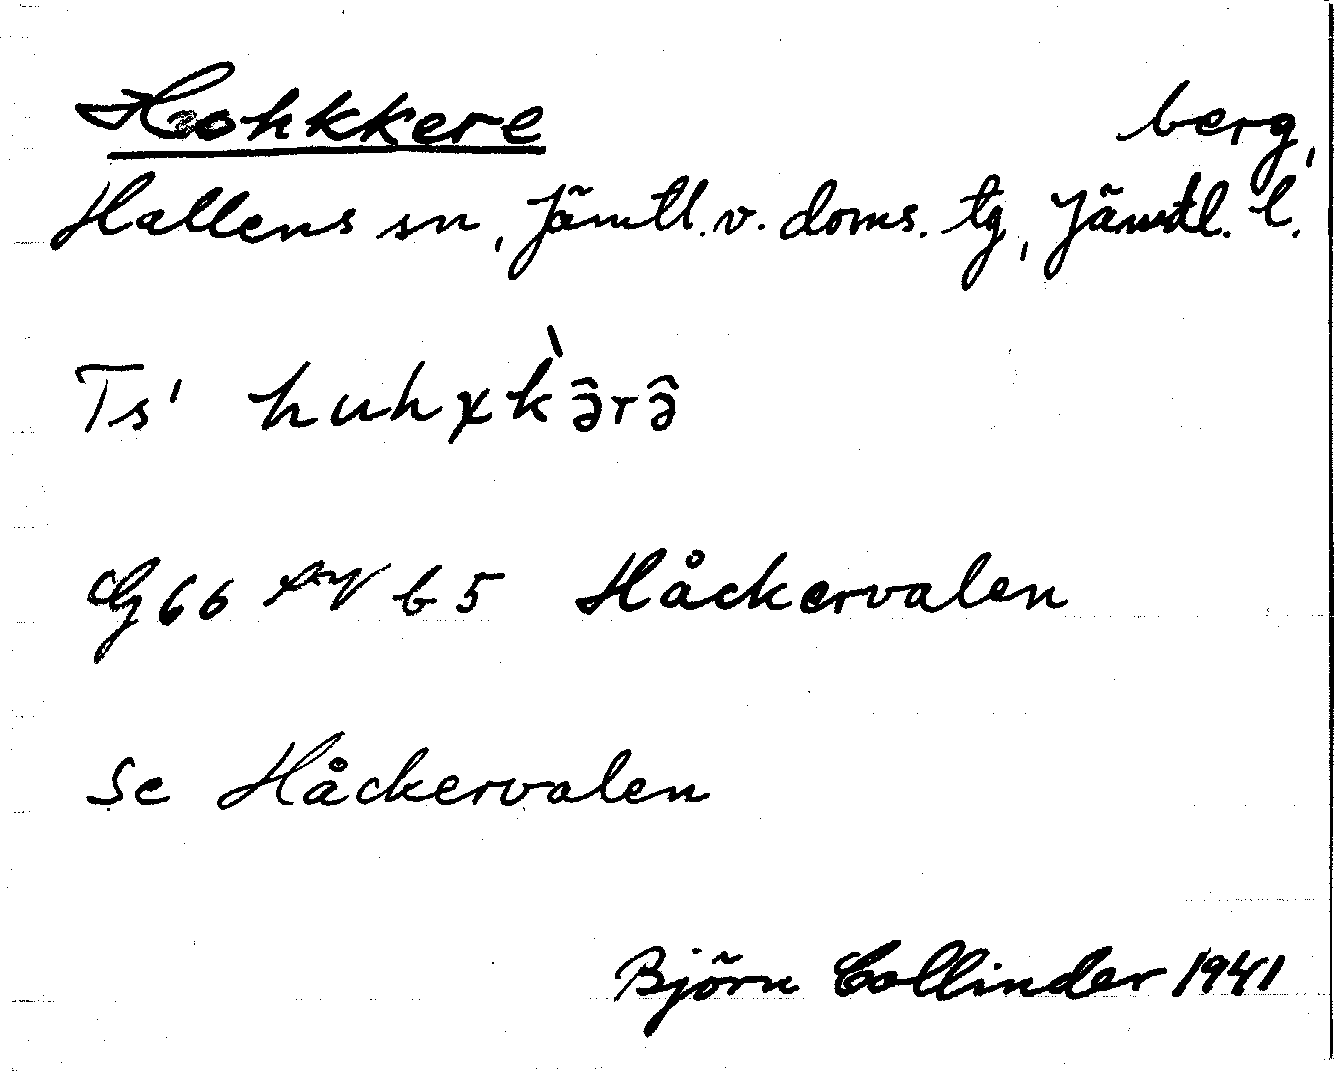 Hohkkere berg,
Hallens sn, Jämtl. v. doms. tg, Jämtl. l.
Ts' huhxk̀ə̑rə̑
G66 b5 Håckervalen
Se Håckervalen
Björn Collinder 1941